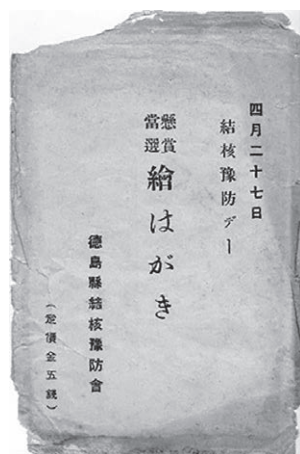 四月二十七日
結核豫防デー
懸賞
當選
繪はがき
德島縣結核豫防會
(定價金五錢)